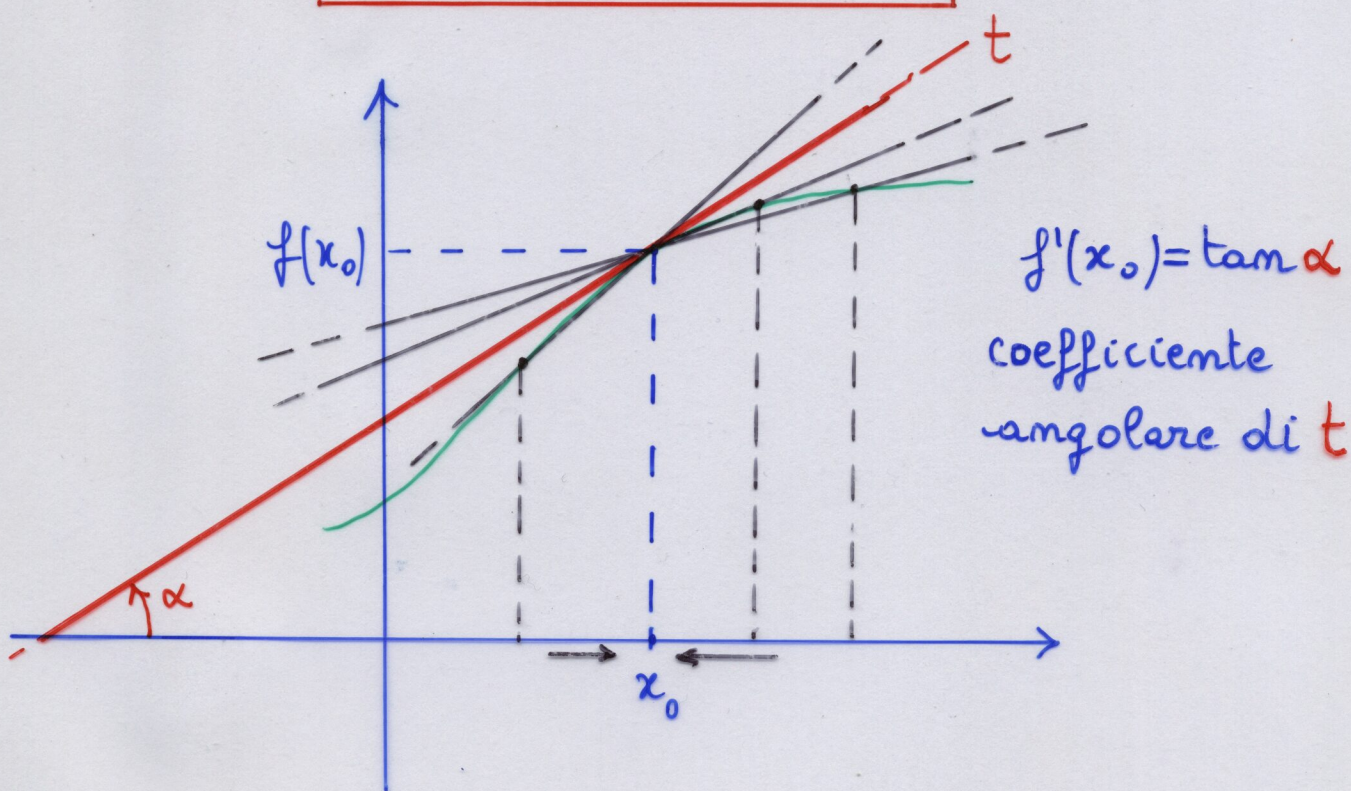 t
f(x₀)
f'(x₀)=tan α
coefficiente
angolare di t
α
x₀